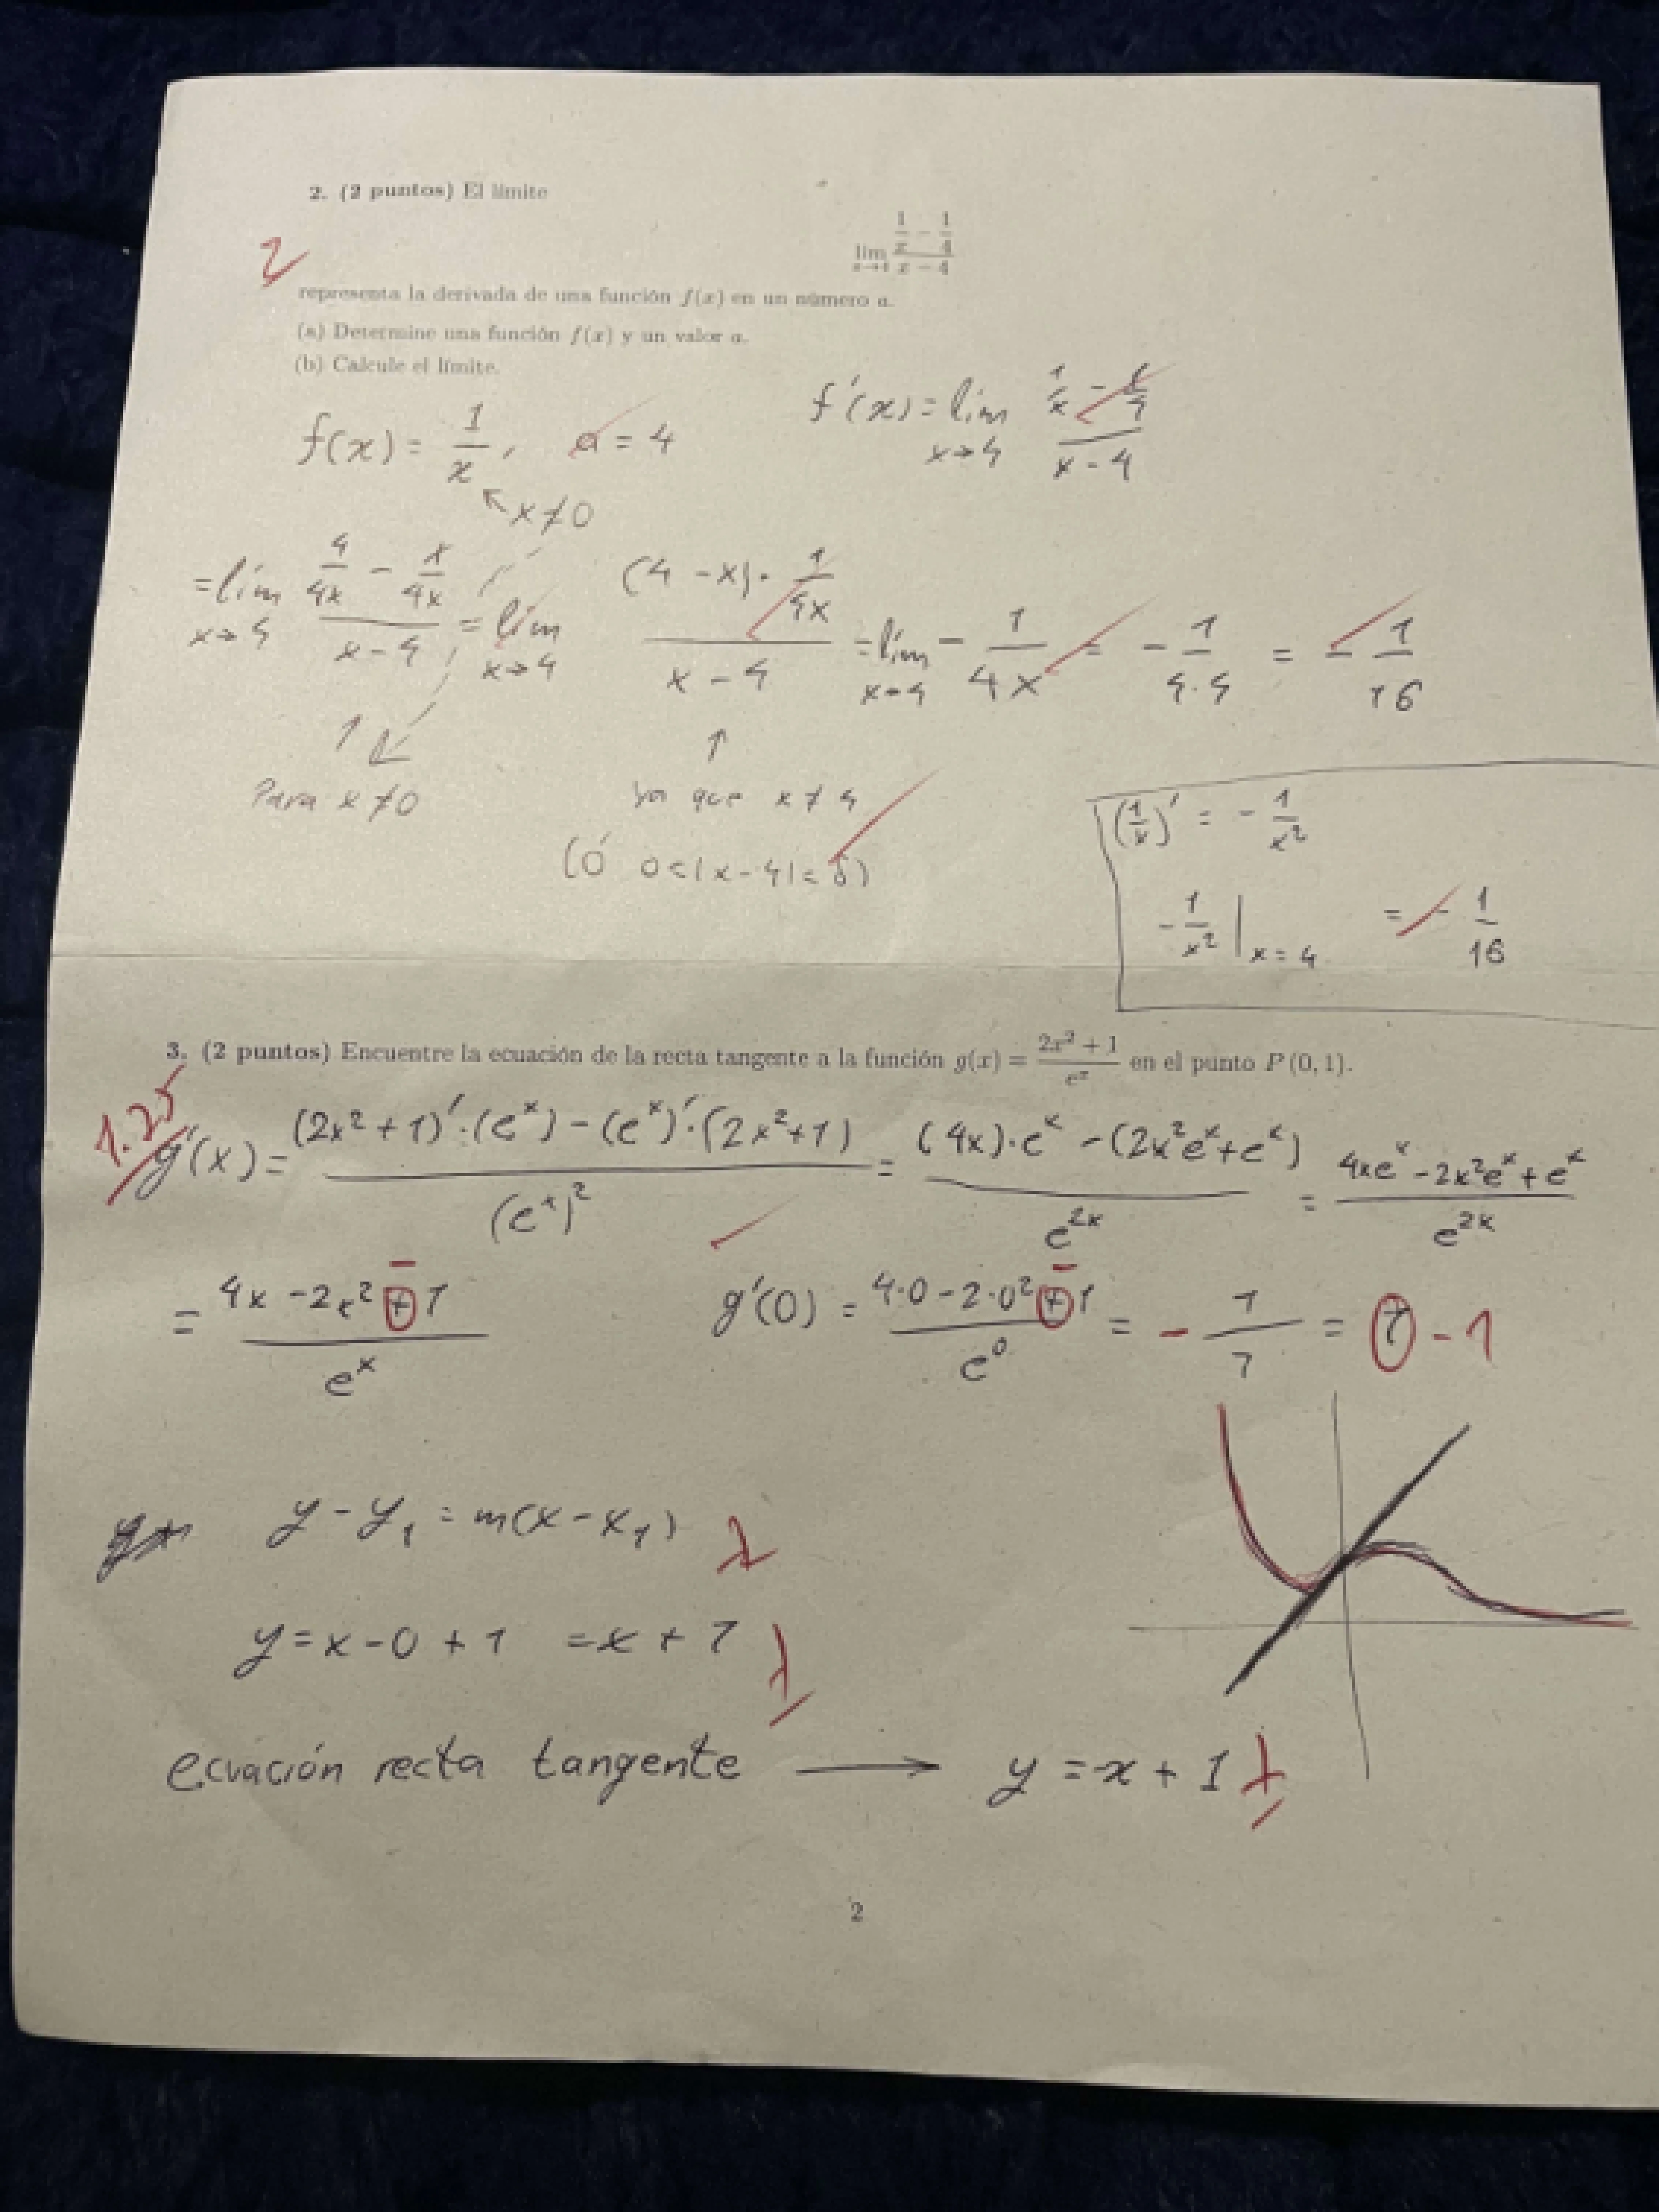 2. (2 puntos) El límite
lim x→4 (1/x − 1/4)/(x − 4)
2
representa la derivada de una función f(x) en un número a.
(a) Determine una función f(x) y un valor a.
(b) Calcule el límite.
f(x) = 1/x, a = 4
x ≠ 0
f'(x) = lim x→4 (1/x − 1/4)/(x − 4)
= lim x→4 (4/4x − x/4x)/(x − 4) = lim x→4 ((4 − x)·1/4x)/(x − 4) = lim x→4 − 1/4x = − 1/4·4 = − 1/16
Para x ≠ 0
ya que x ≠ 4
(ó 0<|x−4|<δ)
(1/x)' = − 1/x²
− 1/x² |x=4 = − 1/16
3. (2 puntos) Encuentre la ecuación de la recta tangente a la función g(x) = (2x² + 1)/e^x en el punto P (0, 1).
1.25
g'(x) = ((2x²+1)'·(e^x) − (e^x)'·(2x²+1))/(e^x)² = ((4x)·e^x − (2x²e^x+e^x))/e^2x = (4xe^x − 2x²e^x + e^x)/e^2x
= (4x − 2x² + 1)/e^x
−
g'(0) = (4·0 − 2·0² + 1)/e^0 = − 1/1 = 1 − 1
−
y − y₁ = m(x − x₁)
y = x − 0 + 1 = x + 1
ecuación recta tangente → y = x + 1
2